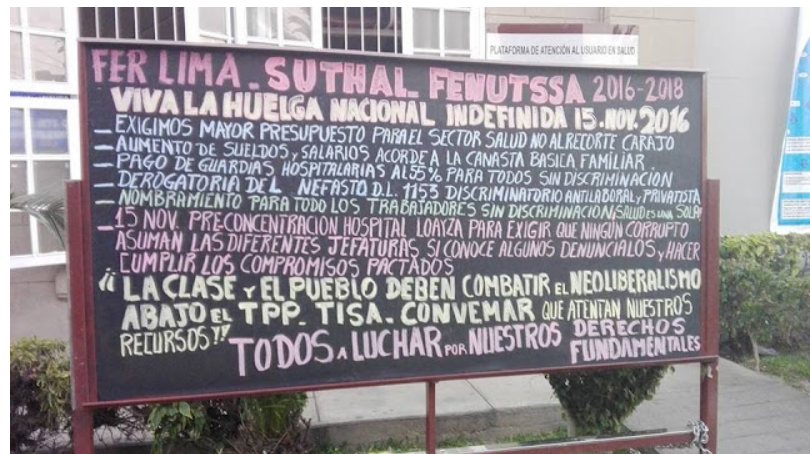 PLATAFORMA DE ATENCIÓN AL USUARIO EN SALUD
FER LIMA - SUTHAL - FENUTSSA 2016-2018
VIVA LA HUELGA NACIONAL INDEFINIDA 15. NOV. 2016
- EXIGIMOS MAYOR PRESUPUESTO PARA EL SECTOR SALUD NO AL RECORTE CARAJO
- AUMENTO DE SUELDOS y SALARIOS ACORDE A LA CANASTA BASICA FAMILIAR
- PAGO DE GUARDIAS HOSPITALARIAS AL 55% PARA TODOS SIN DISCRIMINACIÓN
- DEROGATORIA DEL NEFASTO D.L. 1153 DISCRIMINATORIO ANTILABORAL y PRIVATISTA
- NOMBRAMIENTO PARA TODO LOS TRABAJADORES SIN DISCRIMINACION, SALUD ES UNA SOLA
- 15 NOV. PRE-CONCENTRACION HOSPITAL LOAYZA PARA EXIGIR QUE NINGÚN CORRUPTO
ASUMAN LAS DIFERENTES JEFATURAS SI CONOCE ALGUNOS DENUNCIALOS y HACER
CUMPLIR LOS COMPROMISOS PACTADOS
¡¡ LA CLASE Y EL PUEBLO DEBEN COMBATIR EL NEOLIBERALISMO
ABAJO EL TPP. TISA. CONVEMAR QUE ATENTAN NUESTROS
RECURSOS !!
TODOS A LUCHAR POR NUESTROS DERECHOS
FUNDAMENTALES